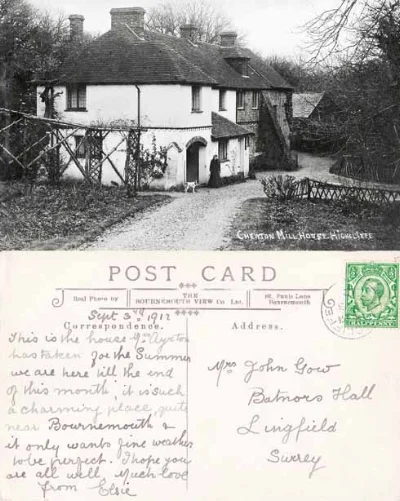 CHEWTON MILL HOUSE. HIGHCLIFFE
POST CARD
Real Photo by
THE
BOURNEMOUTH VIEW Co Ltd.
St. Pauls Lane
Bournemouth
Correspondence.
Address.
HALFPENNY
Sept 3rd 1912
This is the house
has taken for the Summer
we are here till the end
of this month, it is such
a charming place, quite
near Bournemouth &
it only wants fine weather
to be perfect. I hope you
are all well. Much love
from Elsie
Mrs John Gow
Batnors Hall
Lingfield
Surrey